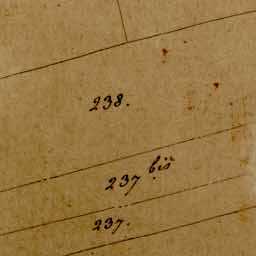 238.
237 bis
237.